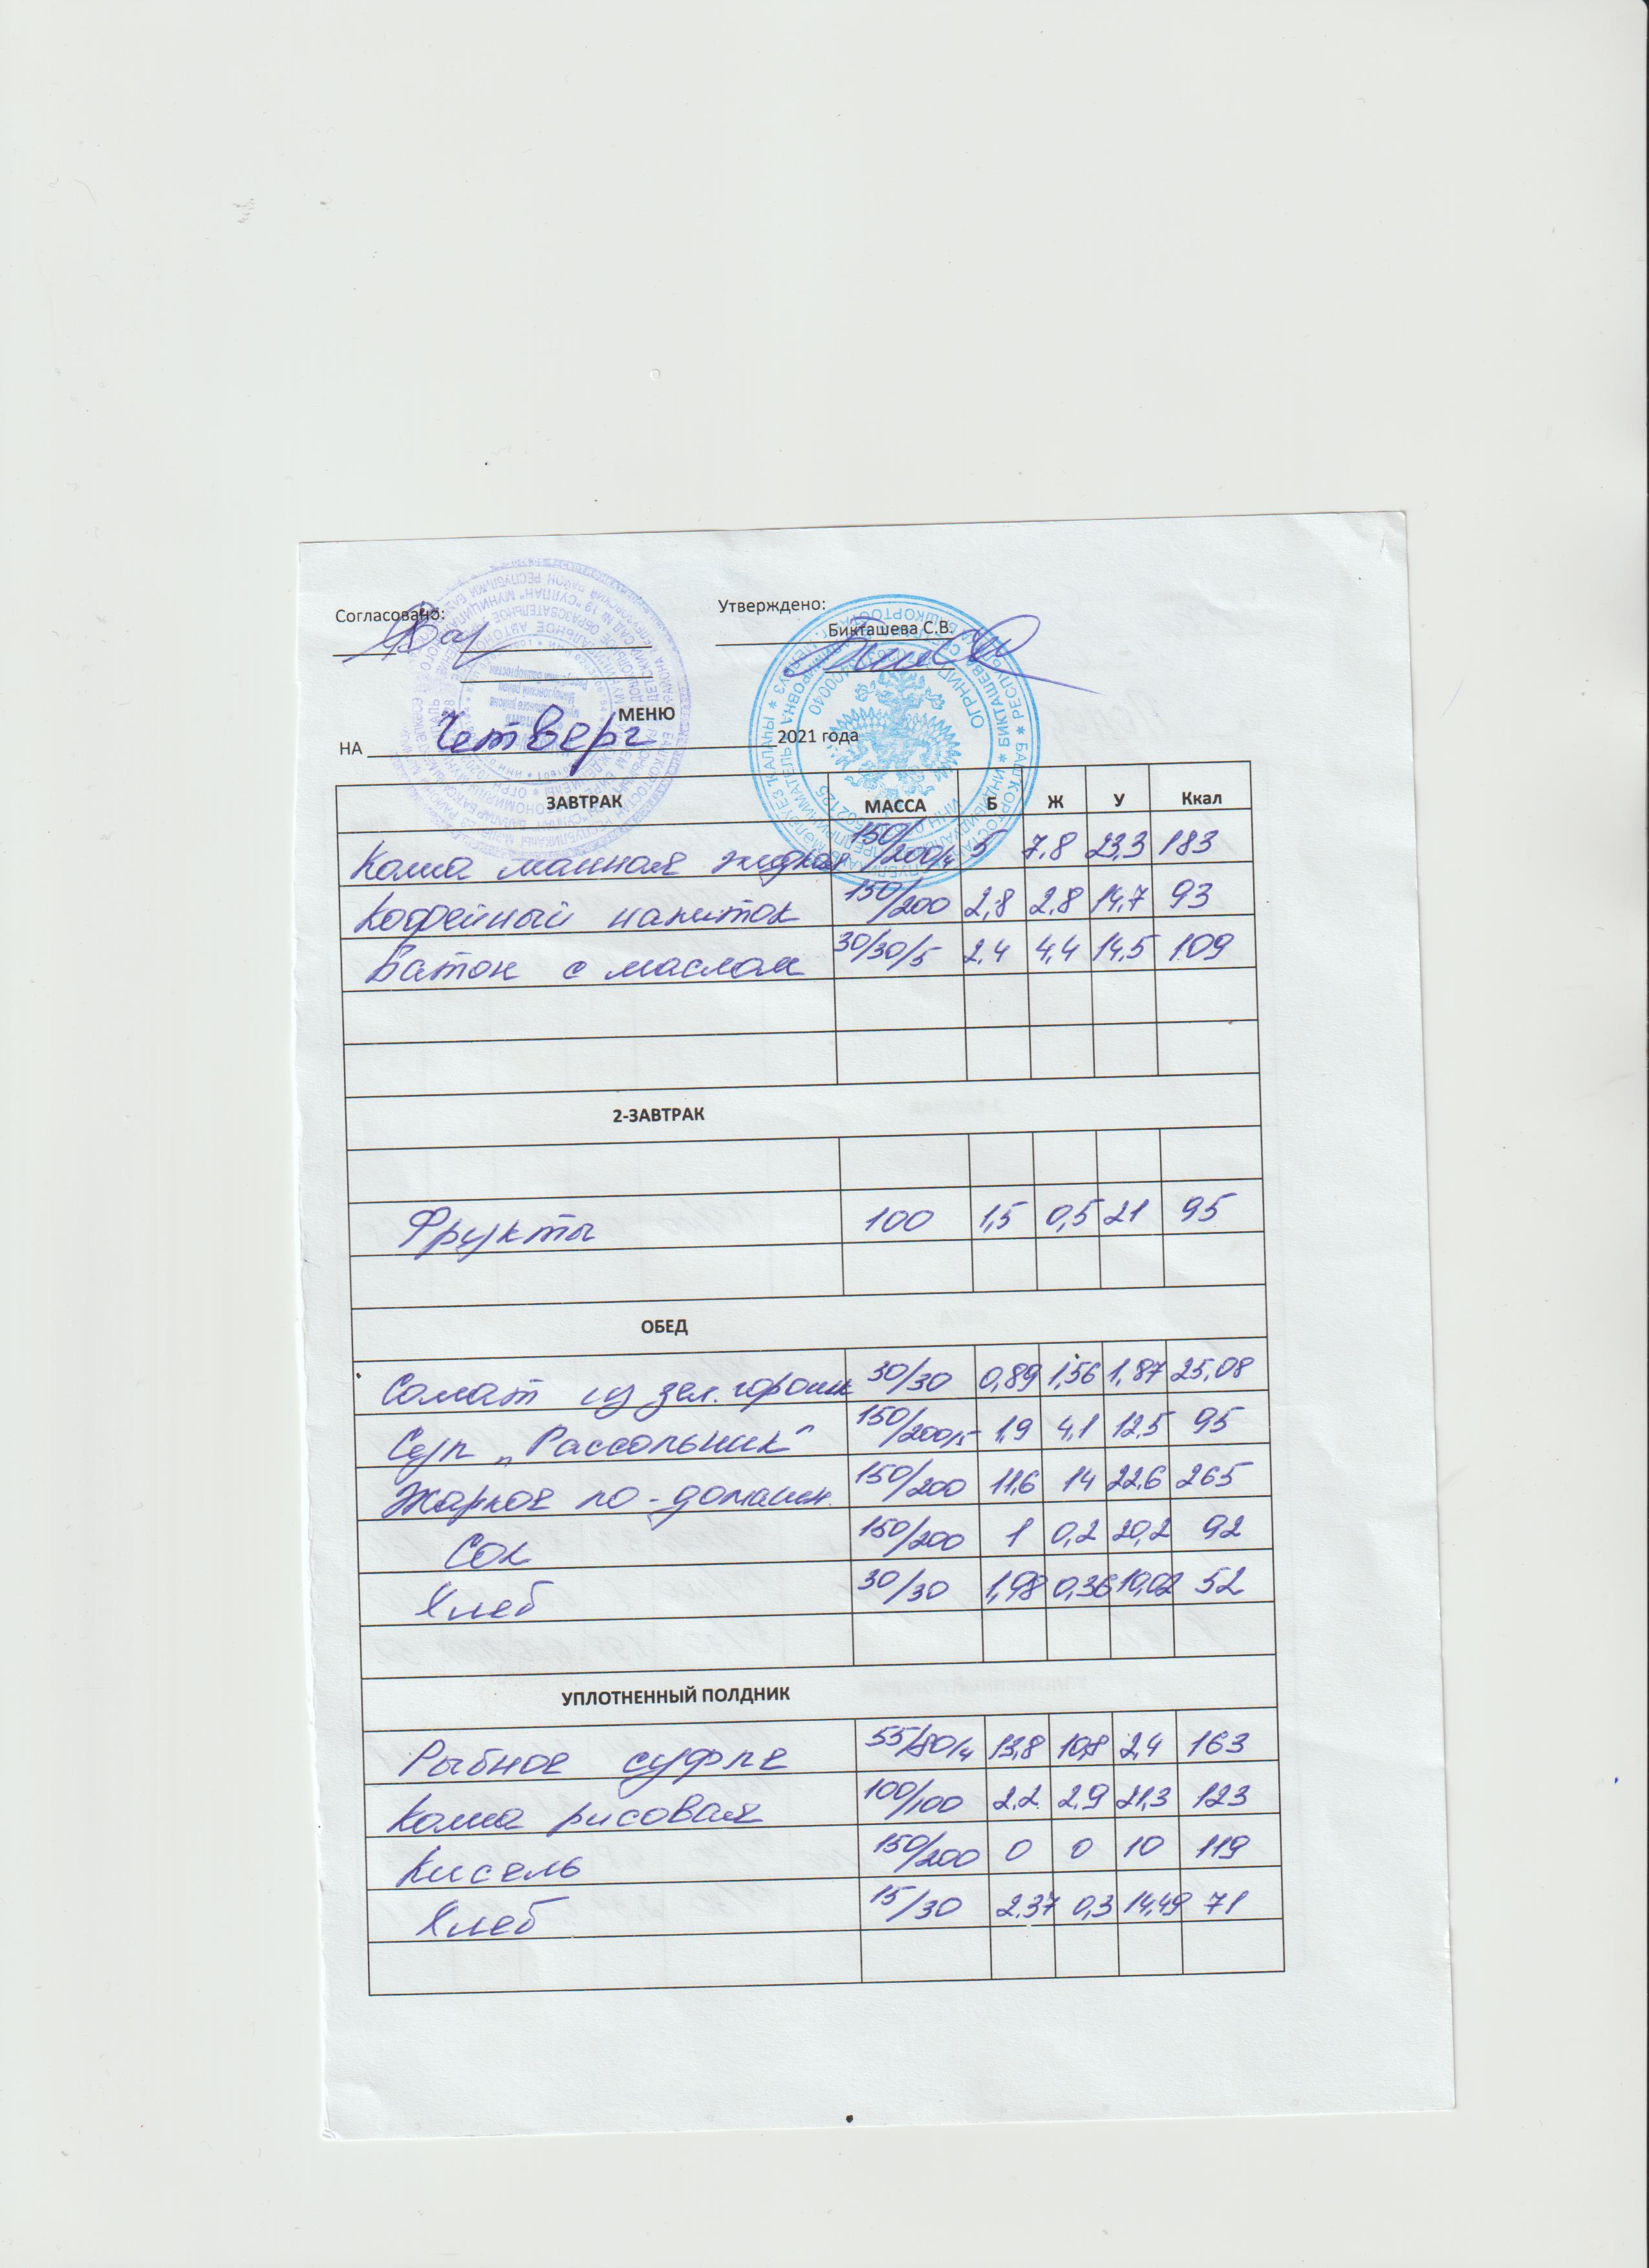 Согласовано:
Утверждено:
Бикташева С.В.
МЕНЮ
НА Четверг 2021 года
ЗАВТРАК МАССА Б Ж У Ккал
Каша манная жидкая 150/200/4 5 7.8 23,3 183
Кофейный напиток 150/200 2,8 2.8 14,7 93
Батон с маслом 30/30/5 2.4 4,4 14,5 109
2-ЗАВТРАК
Фрукты 100 1,5 0,5 21 95
ОБЕД
Салат из зел. горошк 30/30 0,89 1,56 1,87 25,08
Суп „Рассольник" 150/200/5 1,9 4,1 12,5 95
Жаркое по-домашн. 150/200 11,6 14 22,6 265
Сок 150/200 1 0,2 20,2 92
Хлеб 30/30 1,98 0,36 10,02 52
УПЛОТНЕННЫЙ ПОЛДНИК
Рыбное суфле 55/80/4 13,8 10,8 2,4 163
Каша рисовая 100/100 2.2 2,9 21,3 123
Кисель 150/200 0 0 10 119
Хлеб 15/30 2.37 0,3 14,49 71